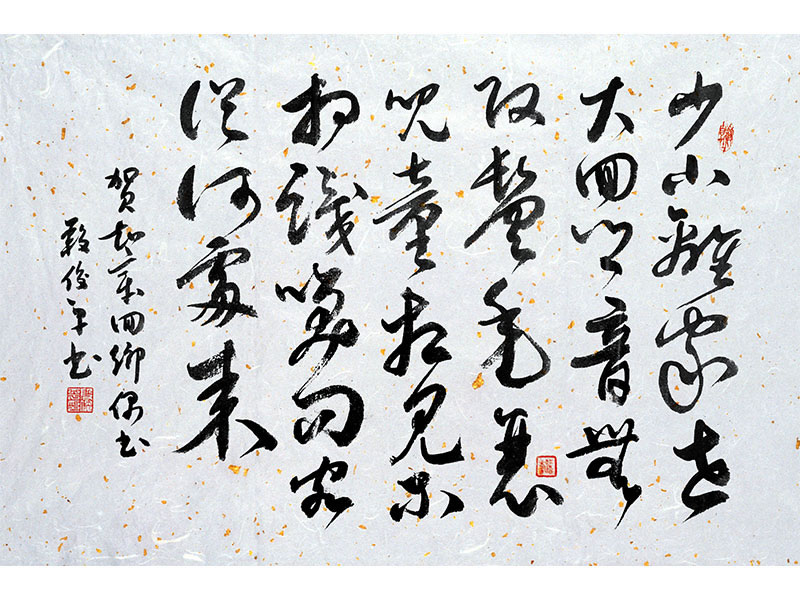 少小離家老
大回鄉音無
改鬢毛衰
兒童相見不
相識笑問客
從何處來
贺知章回鄉偶书
俊平书